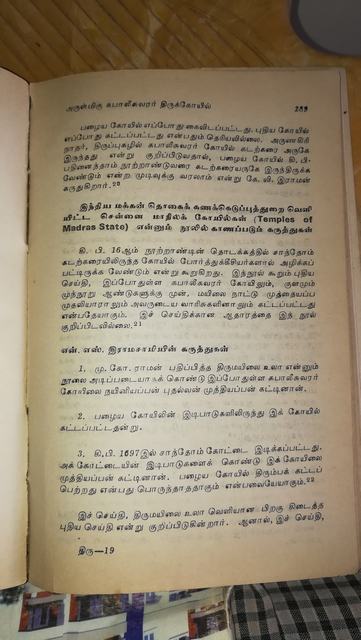 அருள்மிகு கபாலீசுவரர் திருக்கோயில் 289
பழைய கோயில் எப்போது கைவிடப்பட்டது. புதிய கோயில்
எப்போது கட்டப்பட்டது என்பதும் தெரியவில்லை. அருணகிரி
நாதர், திருப்புகழில் கபாலீசுவரர் கோயில் கடற்கரை அருகே
இருந்தது என்று குறிப்பிடுவதால், பழைய கோயில் கி. பி.
பதினைந்தாம் நூற்றாண்டுவரை கடற்கரையருகே இருந்திருக்க
வேண்டும் என்ற முடிவுக்கு வரலாம் என்று கே. வி. இராமன்
கருதுகிறார்.20
இந்திய மக்கள் தொகைக் கணக்கெடுப்புத்துறை வெளி
யிட்ட சென்னை மாநிலக் கோயில்கள் (Temples of
Madras State) என்னும் நூலில் காணப்படும் கருத்துகள்
கி. பி. 16ஆம் நூற்றாண்டின் தொடக்கத்தில் சாந்தோம்
கடற்கரையிலிருந்த கோயில் போர்த்துக்கீசியர்களால் அழிக்கப்
பட்டிருக்க வேண்டும் என்று கூறுகிறது. இந்நூல் கூறும் புதிய
செய்தி, இப்போதுள்ள கபாலீசுவரர் கோயிலும், குளமும்
முந்நூறு ஆண்டுகளுக்கு முன், மயிலை நாட்டு முத்தையப்ப
முதலியாராலும் அவருடைய வாரிசுகளினாலும் கட்டப்பட்டது
என்பதேயாகும். இச் செய்திக்கான ஆதாரத்தை இந் நூல்
குறிப்பிடவில்லை.21
என். எஸ். இராமசாமியின் கருத்துகள்
1. மு. கோ. ராமன் பதிப்பித்த திருமயிலை உலா என்னும்
நூலை அடிப்படையாகக் கொண்டு இப்போதுள்ள கபாலீசுவரர்
கோயிலை நயினியப்பன் புதல்வன் முத்தியப்பன் கட்டினான்.
2. பழைய கோயிலின் இடிபாடுகளிலிருந்து இக் கோயில்
கட்டப்பட்டதன்று.
3. கி.பி. 1697இல் சாந்தோம் கோட்டை இடிக்கப்பட்டது.
அக் கோட்டையின் இடிபாடுகளைக் கொண்டு இக்கோயிலை
முத்தியப்பன் கட்டினான். பழைய கோயில் திரும்பக் கட்டப்
பெற்றது என்பது பொருந்தாததாகும் என்பவையேயாகும்.22
இச் செய்தி, திருமயிலை உலா வெளியான பிறகு கிடைத்த
புதிய செய்தி என்று குறிப்பிடுகின்றார். ஆனால், இச் செய்தி,
திரு—19